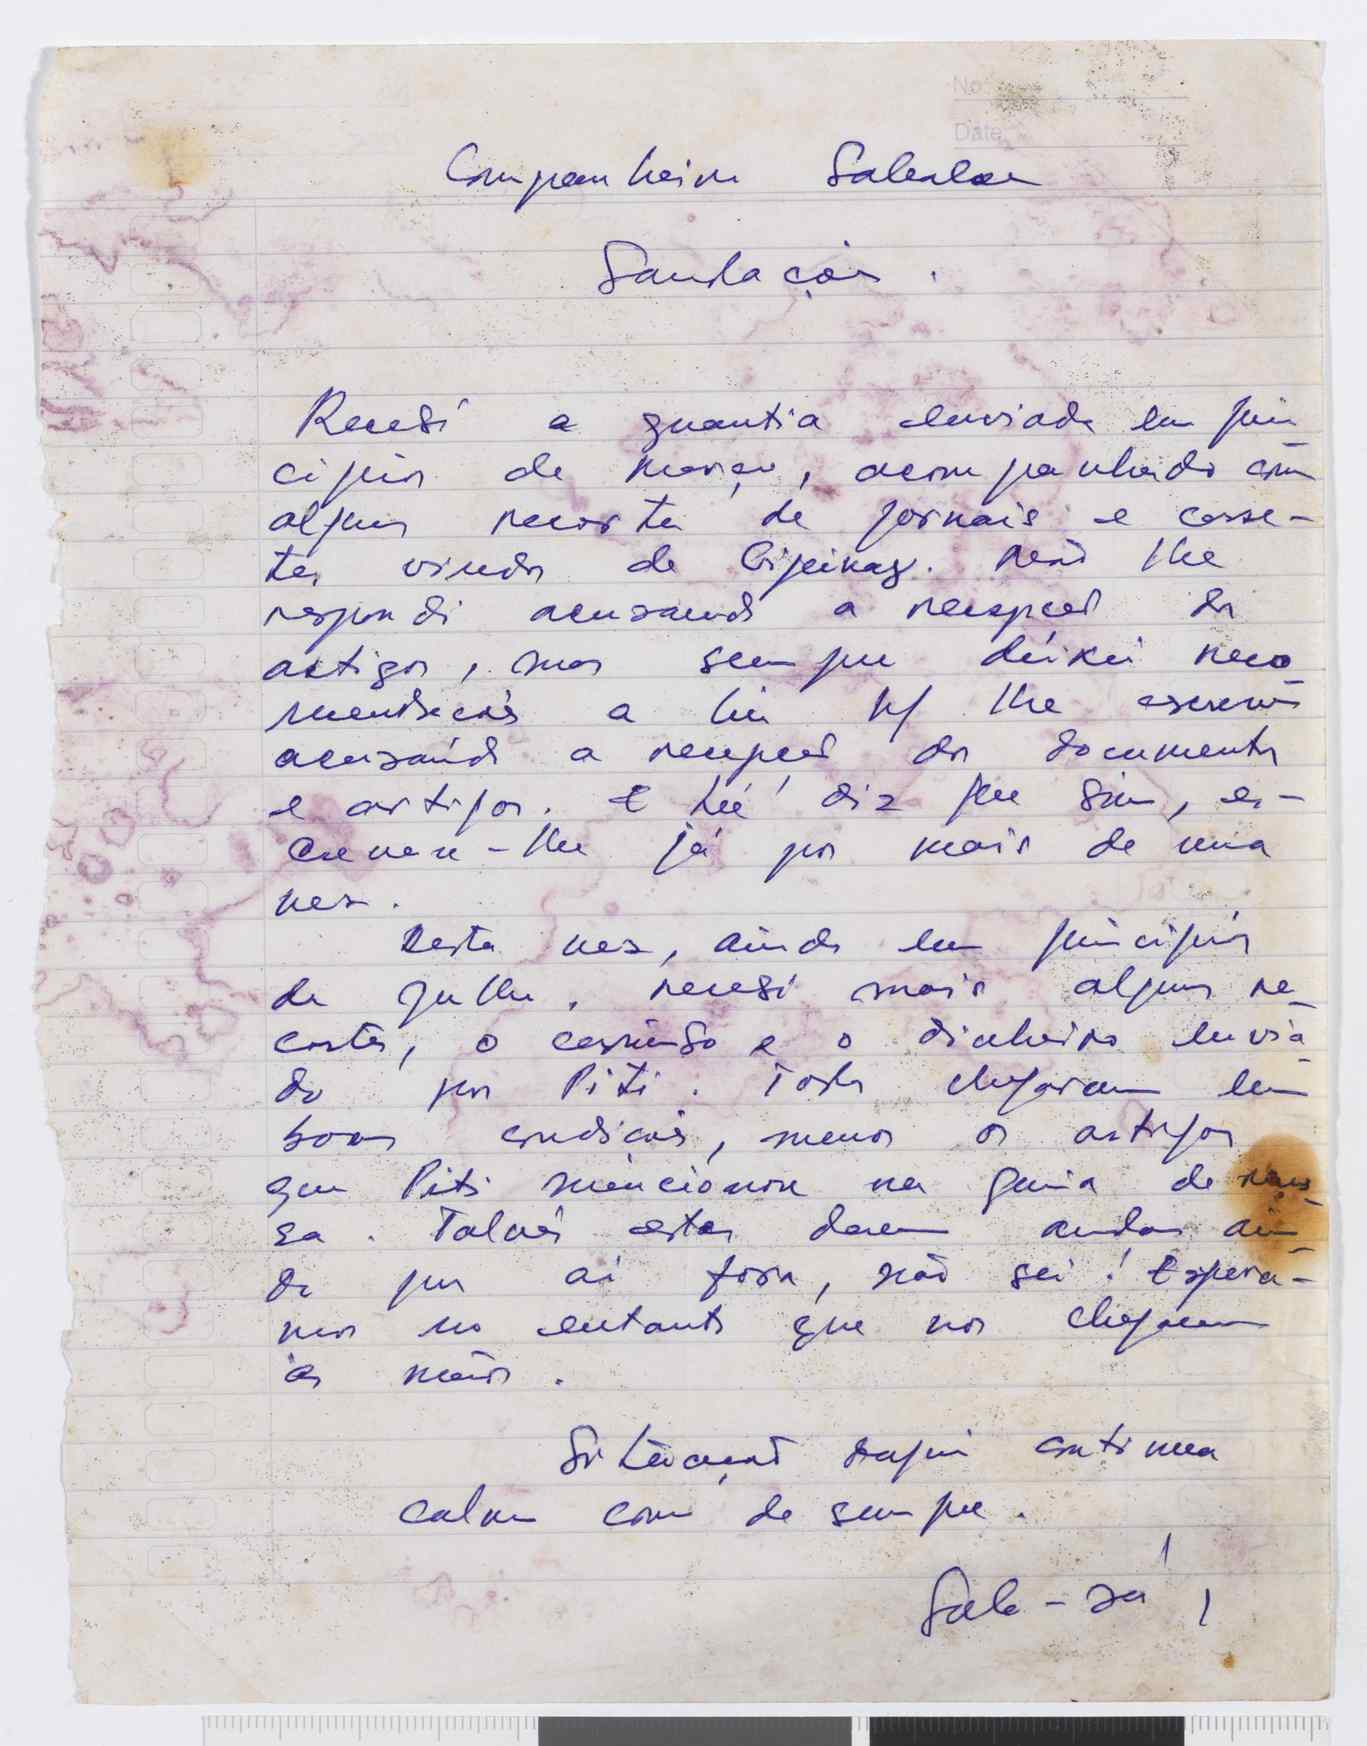 No:
Date:
Companheiro Sabalae
Saudações.
Recebi a quantia enviada em prin
cípios de março, acompanhado com
alguns recortes de jornais e casse-
tes vindos de Cipinag. Não lhe
respondi acusando a recepção dos
artigos, mas sempre deixei reco
mendações a Lu p/ lhe escrever
acusando a recepção dos documentos
e artigos. E diz que sim, es-
creveu-lhe já por mais de uma
vez.
Desta vez, ainda em princípios
de Julho, recebi mais alguns re-
cortes, o carimbo e o dinheiro envia-
do por Piti. Todos chegaram em
boas condições, menos os artigos
que Piti mencionou na guia de remes-
sa. Talvés estes devem andar ain-
da por aí fora, não sei! Espera-
mos no entanto que nos cheguem
às mãos.
Situação daqui continua
calma como de sempre.